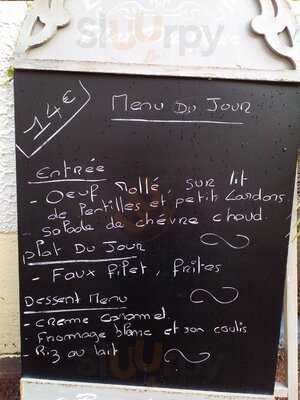 sluurpy
14€
Menu Du Jour
Entrée
- Oeuf Mollé, sur lit
de lentilles et petit Lardons
- salade de chévre chaud.
plat Du Jour
- Faux filet, frites
Dessert Menu
- creme caramel
- fromage blanc et son coulis
- Riz au lait
sluurpy